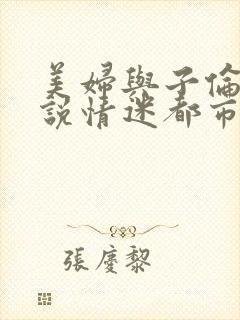 美婦與子倫
説情迷都市
張慶黎